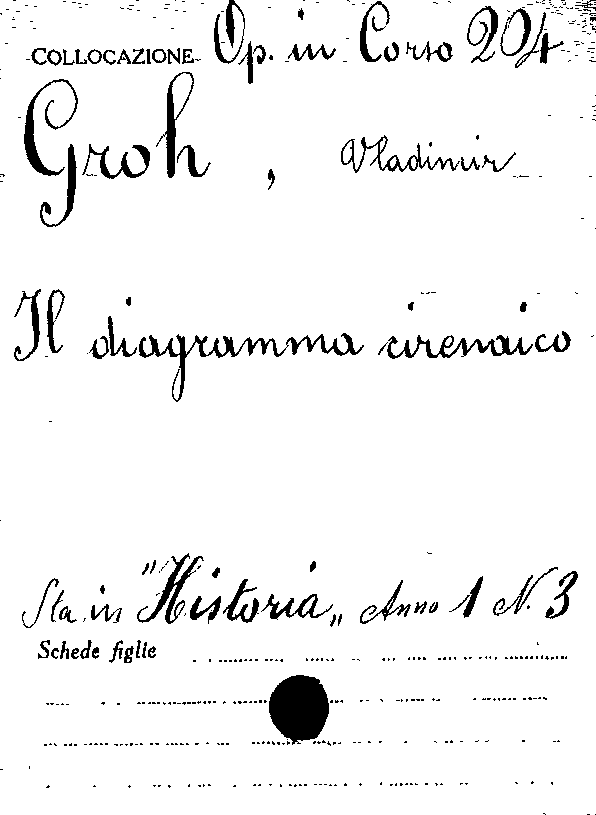 COLLOCAZIONE Op. in Corso 204
Groh, Vladimir
Il diagramma cirenaico
Sta in "Historia„ Anno 1 N. 3
Schede figlie